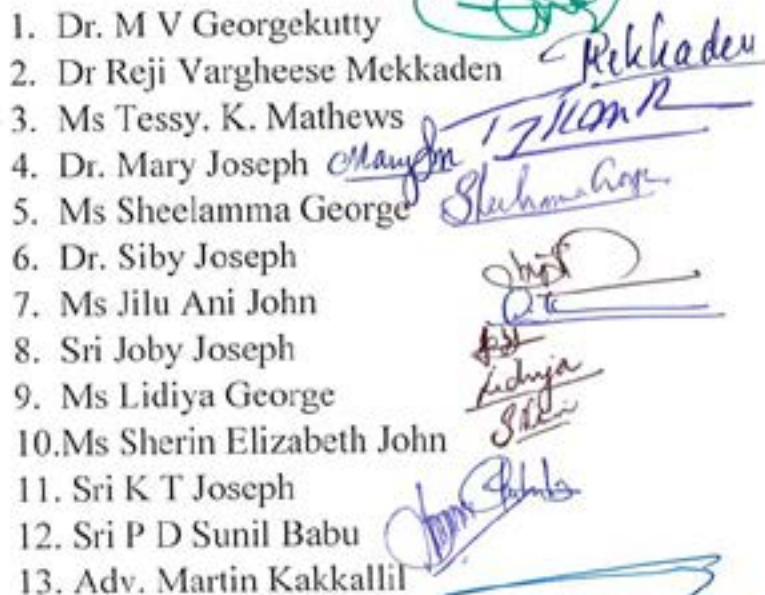 1. Dr. M V Georgekutty
2. Dr Reji Vargheese Mekkaden Mekkaden
3. Ms Tessy. K. Mathews
4. Dr. Mary Joseph
5. Ms Sheelamma George
6. Dr. Siby Joseph
7. Ms Jilu Ani John
8. Sri Joby Joseph
9. Ms Lidiya George Lidiya
10.Ms Sherin Elizabeth John
11. Sri K T Joseph
12. Sri P D Sunil Babu
13. Adv. Martin Kakkallil